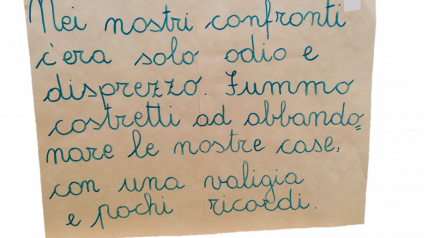 Nei nostri confronti
c'era solo odio e
disprezzo. Fummo
costretti ad abbando=
nare le nostre case,
con una valigia
e pochi ricordi.